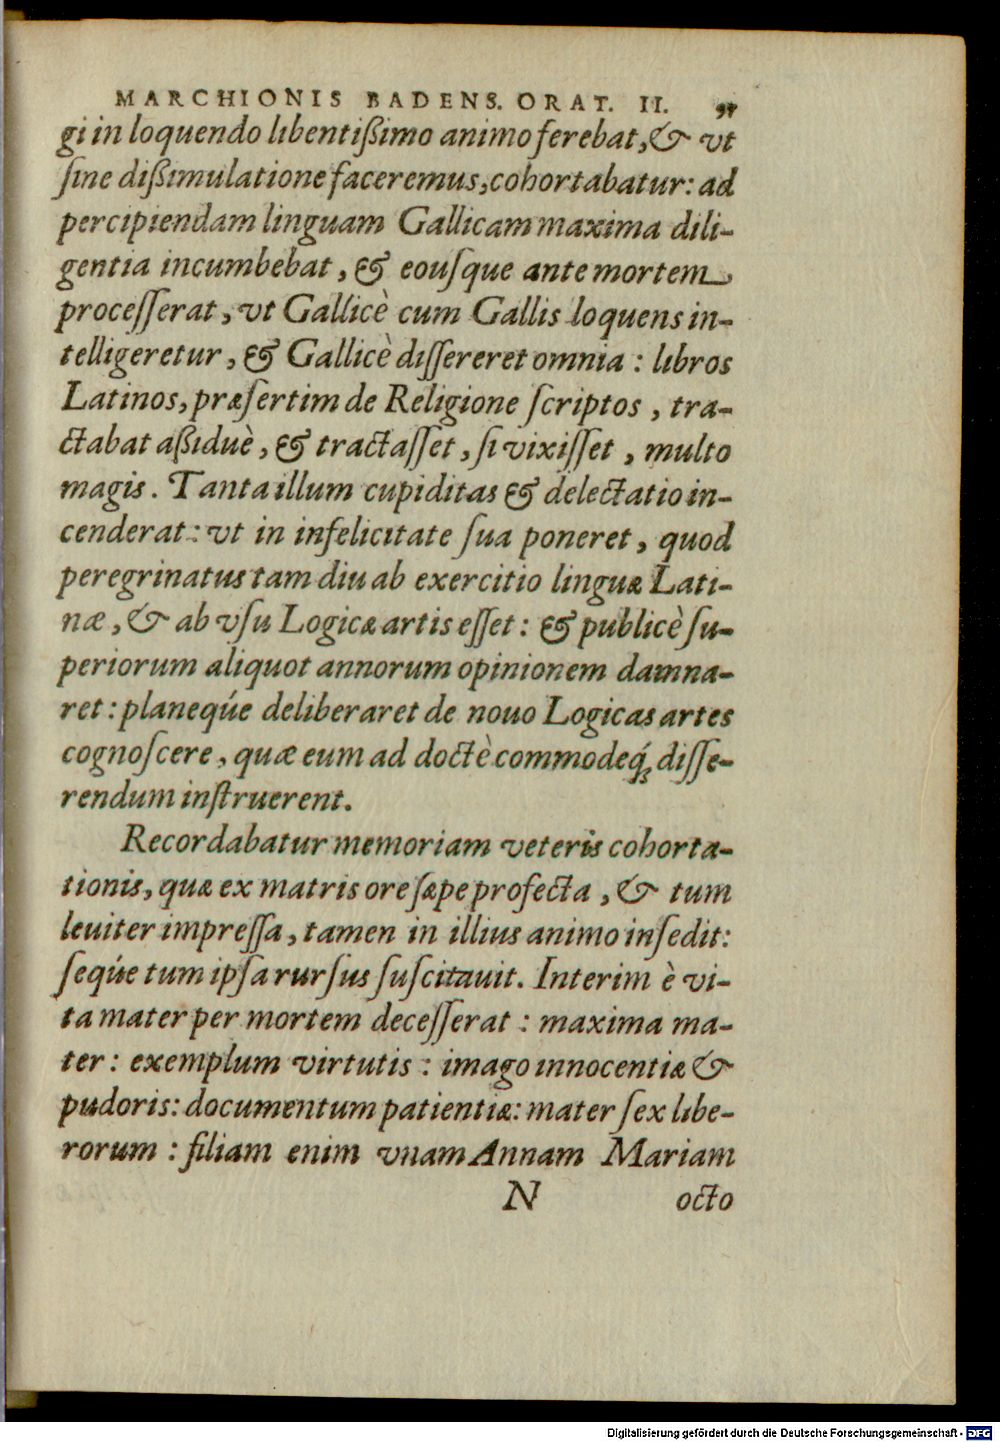 MARCHIONIS BADENS. ORAT. II. 97
gi in loquendo libentißimo animo ferebat, & vt
ſine dißimulatione faceremus, cohortabatur: ad
percipiendam linguam Gallicam maxima dili-
gentia incumbebat, & eouſque ante mortem
proceſſerat, vt Gallicè cum Gallis loquens in-
telligeretur, & Gallicè diſſereret omnia: libros
Latinos, præſertim de Religione ſcriptos, tra-
ctabat aßiduè, & tractaſſet, ſi vixiſſet, multo
magis. Tanta illum cupiditas & delectatio in-
cenderat: vt in infelicitate ſua poneret, quod
peregrinatus tam diu ab exercitio linguæ Lati-
næ, & ab vſu Logicæ artis eſſet: & publicè ſu-
periorum aliquot annorum opinionem damna-
ret: planeq́ue deliberaret de nouo Logicas artes
cognoſcere, quæ eum ad doctè commodeq́; diſſe-
rendum inſtruerent.
Recordabatur memoriam veteris cohorta-
tionis, quæ ex matris ore ſæpe profecta, & tum
leuiter impreſſa, tamen in illius animo inſedit:
ſeq́ue tum ipſa rurſius ſuſcitauit. Interim è vi-
ta mater per mortem deceſſerat: maxima ma-
ter: exemplum virtutis: imago innocentiæ &
pudoris: documentum patientiæ: mater ſex libe-
rorum: filiam enim vnam Annam Mariam
N octo
Digitalisierung gefördert durch die Deutsche Forschungsgemeinschaft - DFG